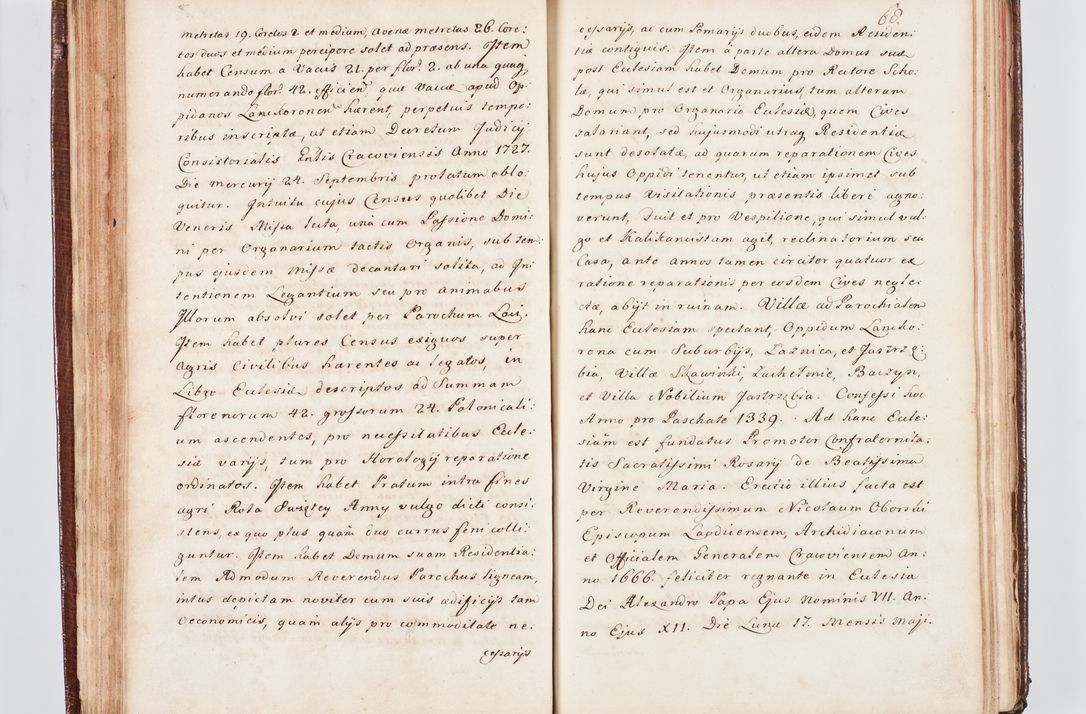 metretas 19. Coretos 2. et medium, avenæ metretas 26. Core:
tos duos et medium percipere solet ad præsens. Item
habet Censum a Vacis 21. per flor: 2. ab una quaq
numerando flor: 42. efficien: quæ Vaccæ apud Op:
pidanos Lanckoronen: hærent, perpetuis tempo:
ribus inscriptæ, ut etiam Decretum Judicij
Consistorialis Gnlis Cracoviensis Anno 1727.
Die mercurij 24. Septembris prolatum eblo:
quitur. Intuitu cujus Census quolibet Die
Veneris Missa lecta, una cum Passione Domi:
ni per Organarium tactis Organis, sub tem:
pus ejusdem missæ decantari solita, ad In:
tentionem Legantium seu pro animabus
Illorum absolvi solet per Parochum Loci.
Item habet plures Census exiguos super
Agris Civilibus hærentes ac legatos, in
Libro Ecclesiæ descriptos ad Summam
florenorum 42. grossorum 24. Polonicali:
um ascendentes, pro necessitatibus Eccle:
siæ varijs, tum pro Horologij reparatione
ordinatos. Item habet Pratum intra fines
agri Rola Swiętey Anny vulgo dicti consi:
stens, ex quo plus quam duo currus feni colli:
guntur. Item habet Domum suam Residentia:
lem Admodum Reverendus Parochus ligneam,
intus depictam noviter cum suis ædificijs tam
Oeconomicis, quam alijs pro commoditate ne:
cessarijs
68.
cessarijs, ac cum Pomarijs duobus, eidem Residen:
tiæ contiguis. Item à parte altera Domus suæ
post Ecclesiam habet Domum pro Rectore Scho:
læ, qui simul est et Organarius, tum alteram
Domum pro Organario Ecclesiæ, quem Cives
salariant, sed hujusmodi utraq Residentiæ
sunt desolatæ, ad quarum reparationem Cives
hujus Oppidi tenentur, ut etiam ipsimet sub
tempus Visitationis præsentis liberè agno:
verunt, Fuit et pro Vespilione, qui simul vul:
go et Kalikancistam agit, reclinatorium seu
Casa, ante annos tamen circiter quatuor ex
ratione reparationis per eosdem Cives neglec:
tæ, abijt in ruinam. Villæ ad Parochialem
hanc Ecclesiam spectant, Oppidum Lancko:
rona cum Suburbijs, Łaznica, et Jastrzę:
bia, Villæ Skawinki, Zachełmie, Baczyn,
et Villa Nobilium Jastrzębia. Confessi hoc
Anno pro Paschate 1339. Ad hanc Eccle:
siam est fundatus Promotor Confraternita:
tis Sacratissimi Rosarij de Beatissima
Virgine Maria. Erectio illius facta est
per Reverendissimum Nicolaum Oborski
Episcopum Laodicensem, Archidiaconum
et Officialem Generalem Cracoviensem An:
no 1666. feliciter regnante in Ecclesia
Dei Alexandro Papa Ejus Nominis VII. An:
no Ejus XII. Die Lunæ 17. Mensis Maji.